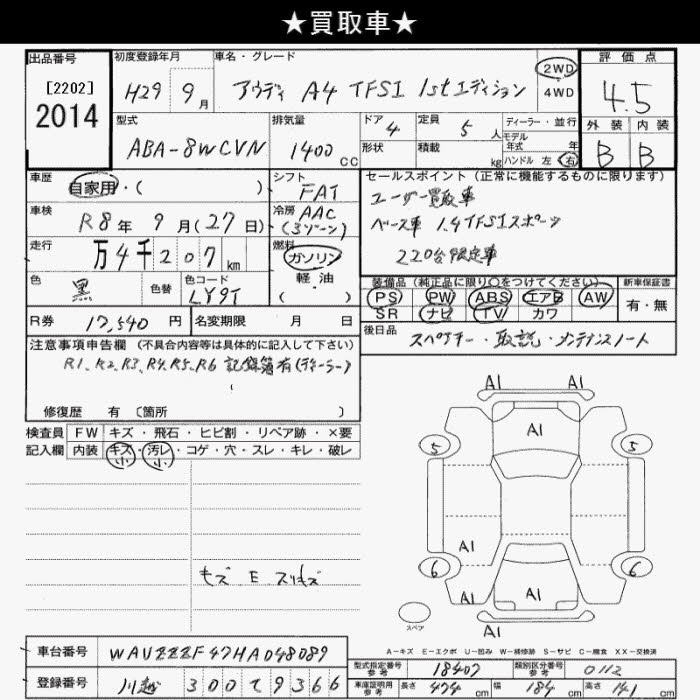 ★買取車★
出品番号 初度登録年月 車名・グレード 評価点
[2202] H29 9月 アウディ A4 TFSI 1stエディション 2WD 4WD 4.5
2014
型式 排気量 ドア 4 定員 5人 ディーラー・並行 外装 内装
ABA-8WCVN 1400cc 形状 積載 kg モデル年式 年 ハンドル 左 右 B B
車歴 自家用・( ) シフト FAT セールスポイント(正常に機能するものに限ります)
車検 R8年 9月(27日) 冷房 AAC (3ゾーン) ユーザー買取車
走行 万4千207km 燃料 ガソリン ベース車 1.4TFSIスポーツ
色 黒 色替 色コード LY9T 軽・油 ( ) 220台限定車
装備品(純正品に限り○をつけてください) 新車保証書
PS PW ABS エアB AW 有・無
SR ナビ TV カワ
R券 17,540円 名変期限 月 日 後日品 スペアキー・取説・メンテナンスノート
注意事項申告欄(不具合内容等は具体的に記入して下さい)
R1、R2、R3、R4、R5、R6 記録簿有(ディーラー)
修復歴 有 〔箇所 〕
検査員 FW キズ・飛石・ヒビ割・リペア跡・×要
記入欄 内装 キズ・汚レ・コゲ・穴・スレ・キレ・破レ
小 小
A1 A1
A1
5 5
A1
6 6
A1 A1
A1
キズ E スリキズ
スペア
A-キズ E-エクボ U-凹み W-補修跡 S-サビ C-腐食 XX-交換済
車台番号 WAUZZZF47HA048089
型式指定番号 参考 18407 類別区分番号 参考 0112
登録番号 川越 300て9366
車庫証明用 参考 長さ 474cm 幅 184cm 高さ 141cm